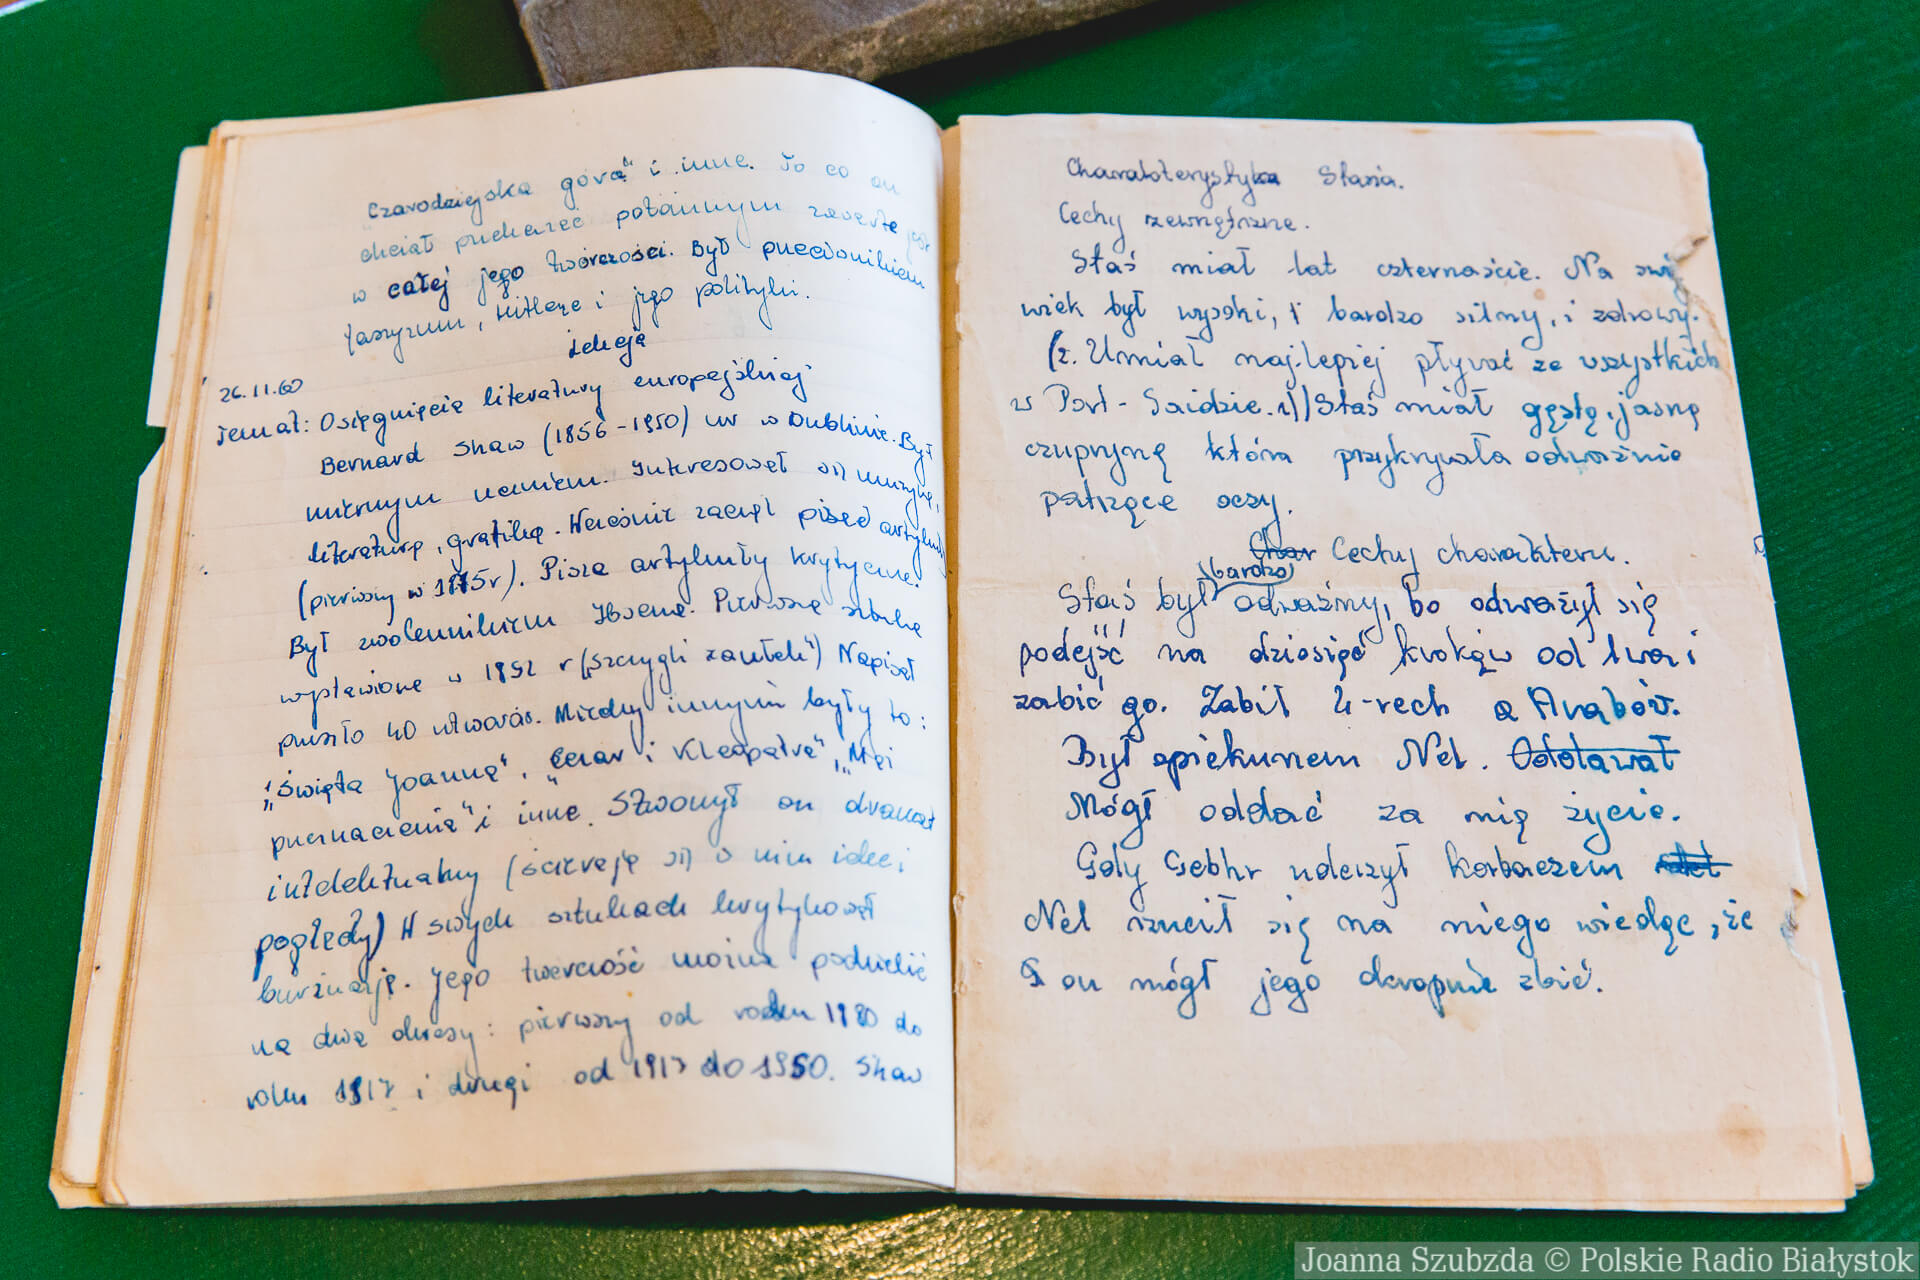 Czarodziejska góra" i inne. To co on
chciał przekazać potomnym zawarte jest
w całej jego twórczości. Był przeciwnikiem
faszyzmu, Hitlera i jego polityki.
Lekcja
26.11.60
Temat: Osiągnięcia literatury europejskiej
Bernard Shaw (1856-1950) ur w Dublinie. Był
miernym uczniem. Interesował się muzyką,
literaturą, grafiką. Wcześnie zaczął pisać artykuły
(pierwszy w 1875r). Pisze artykuły krytyczne.
Był zwolennikiem Ibsena. Pierwszą sztukę
wystawiono w 1892 r („Szczygli zaułek") Napisał
przeszło 40 utworów. Między innymi były to:
„Święta Joanna", „Cezar i Kleopatra", „Mąż
przeznaczenia" i inne. Stworzył on dramat
intelektualny (ścierają się w nim idee i
poglądy) W swych sztukach krytykował
burżuazję. Jego twórczość można podzielić
na dwa okresy: pierwszy od roku 1880 do
roku 1917 i drugi od 1917 do 1950. Shaw
Charakterystyka Stasia.
Cechy zewnętrzne.
Staś miał lat czternaście. Na swój
wiek był wysoki, i bardzo silny, i zdrowy.
(2. Umiał najlepiej pływać ze wszystkich
w Port-Saidzie. 1)) Staś miał gęstą, jasną
czuprynę która przykrywała odważnie
patrzące oczy.
Char Cechy charakteru.
bardzo
Staś był odważny, bo odważył się
podejść na dziesięć kroków od lwa i
zabić go. Zabił 4-rech a Arabów.
Był opiekunem Nel. Oddawał
Mógł oddać za nią życie.
Gdy Gebhr uderzył korbaczem
Nel rzucił się na niego wiedząc, że
on mógł jego okropnie zbić.
Joanna Szubzda © Polskie Radio Białystok